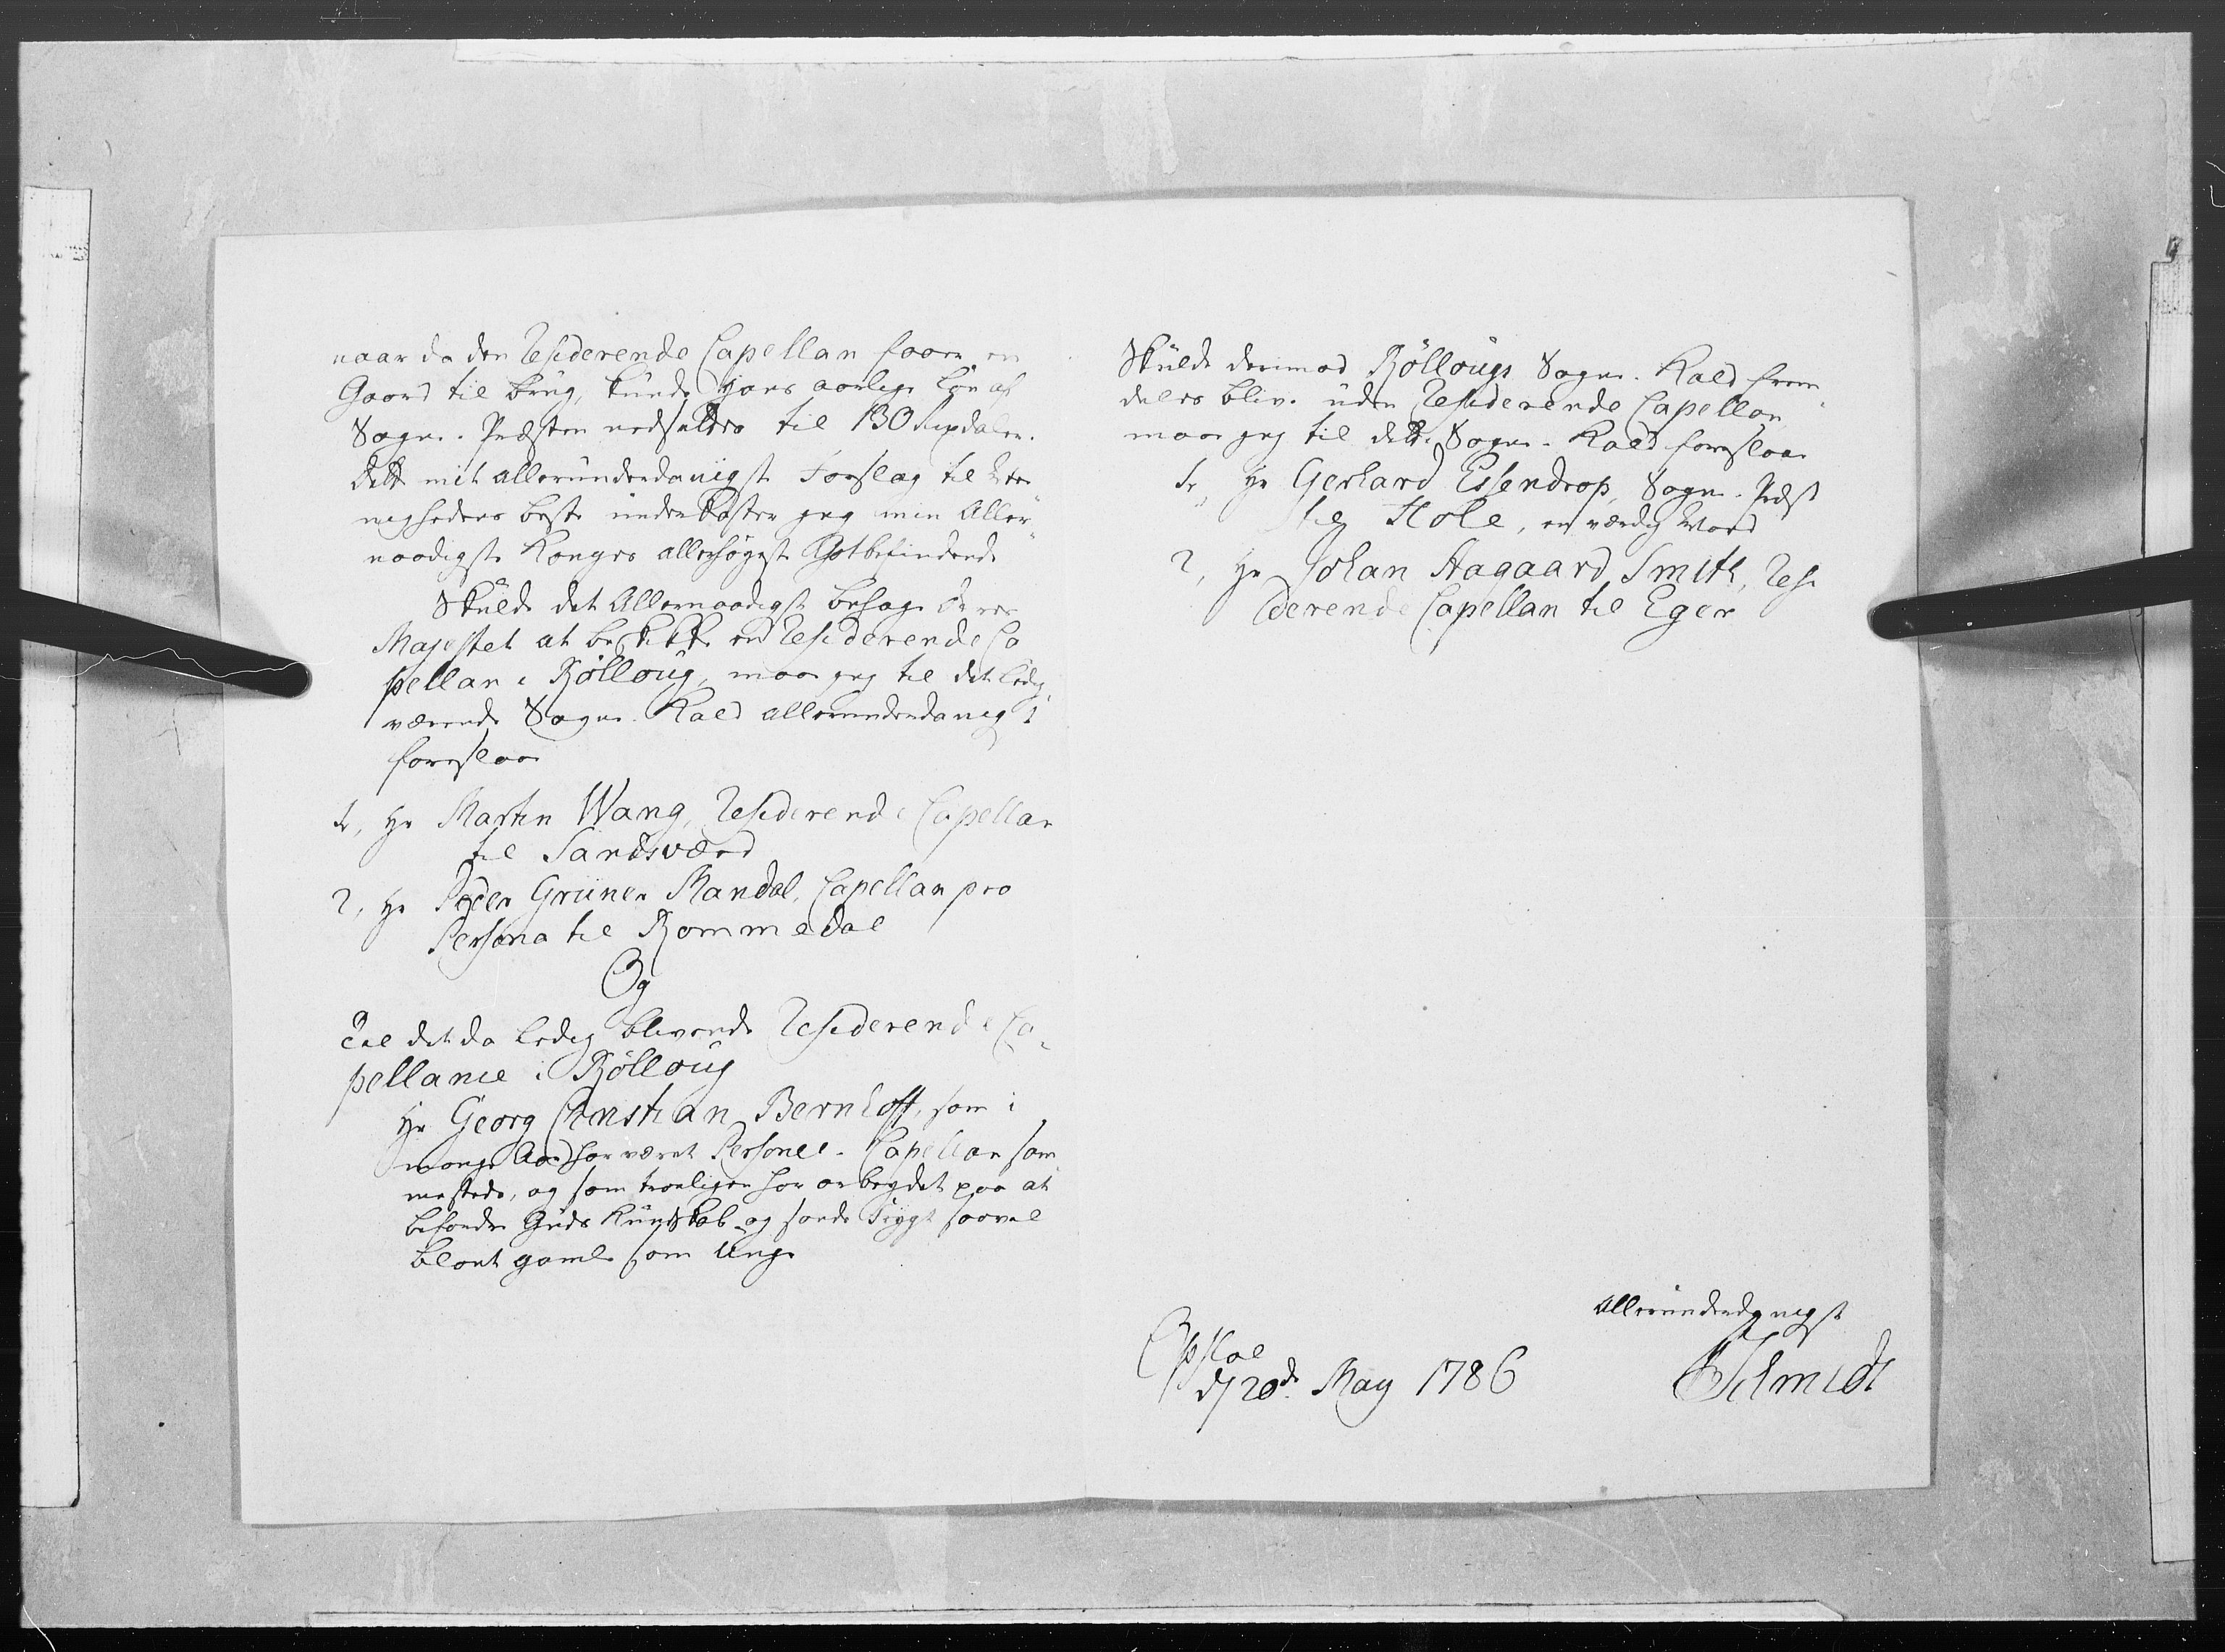 naar da den Residerende Capellan faaer en
Gaard til brug, kunde Hans aarlige Løn af
Sogne-Præsten nedsættes til 130 Rixdaler.
Dette mit allerunderdanigste Forslag til
nighedens beste underkaster jeg min Aller-
naadigste Konges allerhøyeste Gotbefindende
Skulde det Allernaadigst behage Deres
Majestet at beskikke en Residerende Ca
pellan i Rôlloug, maae jeg til det ledig
værende Sogne-Kald allerunderdanigst
foreslaae
1, Hr Martin Wang, Residerende Capellan
til Sandsværd
2, Hr Peder Grüner Mandal, Capellan pro
Persona til Rommedal
Og
Til det da ledig blivende Residerende Ca-
pellanie i Rôlloug
Hr Georg Christian Bernhoft, som i
mange Aar har været Personel-Capellan sam
mesteds, og som troeligen har arbeydet paa at
befordre Guds Kundskab og sande Frygt saavel
blant gamle som Unge
Skulde derimod Rôllougs Sogne-Kald frem-
deles blive uden Residerende Capellan
maae jeg til dette Sogne-Kald foreslaae
1, Hr Gerhard Essendrop, Sogne-Præst
til Hole, en værdig Mand
2, Hr Johan Aagaard Smith, Resi
derende Capellan til Eger
Allerunderdanigst
Opsloe
d 20de May 1786
Schmidt